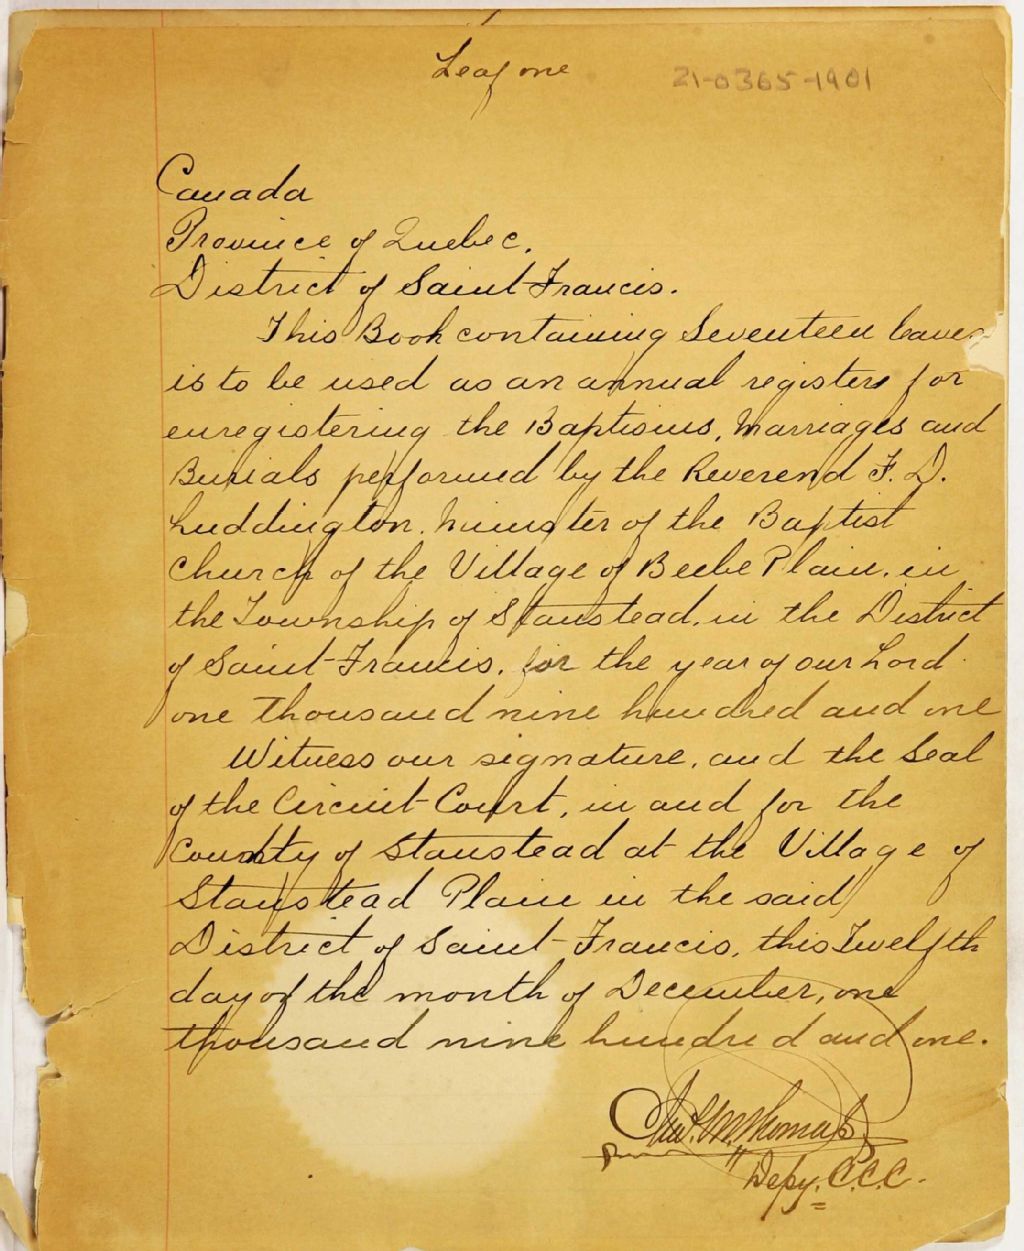 Leaf one
21-0365-1901
Canada
Province of Quebec.
District of Saint-Francis.
This Book containing Seventeen leaves
is to be used as an annual register for
enregistering the Baptisms, Marriages and
Burials performed by the Reverend F. D.
Luddington. Minister of the Baptist
Church of the Village of Beebe Plain, in
the Township of Stanstead, in the District
of Saint-Francis, for the year of our Lord
one thousand nine hundred and one
Witness our signature, and the Seal
of the Circuit Court, in and for the
County of Stanstead at the Village of
Stanstead Plain in the said
District of Saint-Francis, this Twelfth
day of the month of December, one
thousand nine hundred and one.
Thomas
Depy. C.C.C.